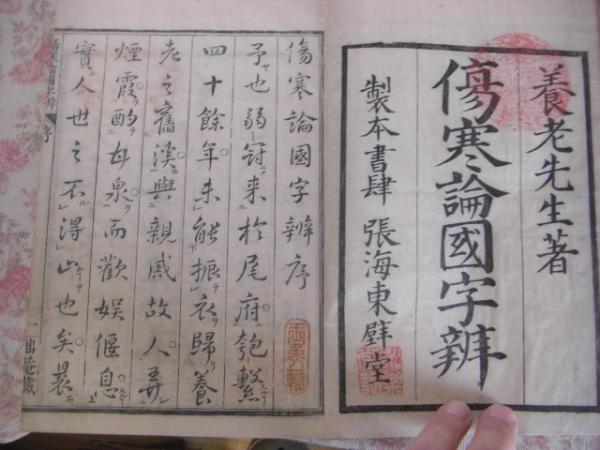 養老先生著
傷寒論國字辨
製本書肆 張海東壁堂
傷寒論國字辨序
予也弱冠来於尾府匏繫
四十餘年未能振衣歸養
老之舊溪與親戚故人弄
煙霞酌甘泉而歡娯偃息
實人世之不得山也矣曩